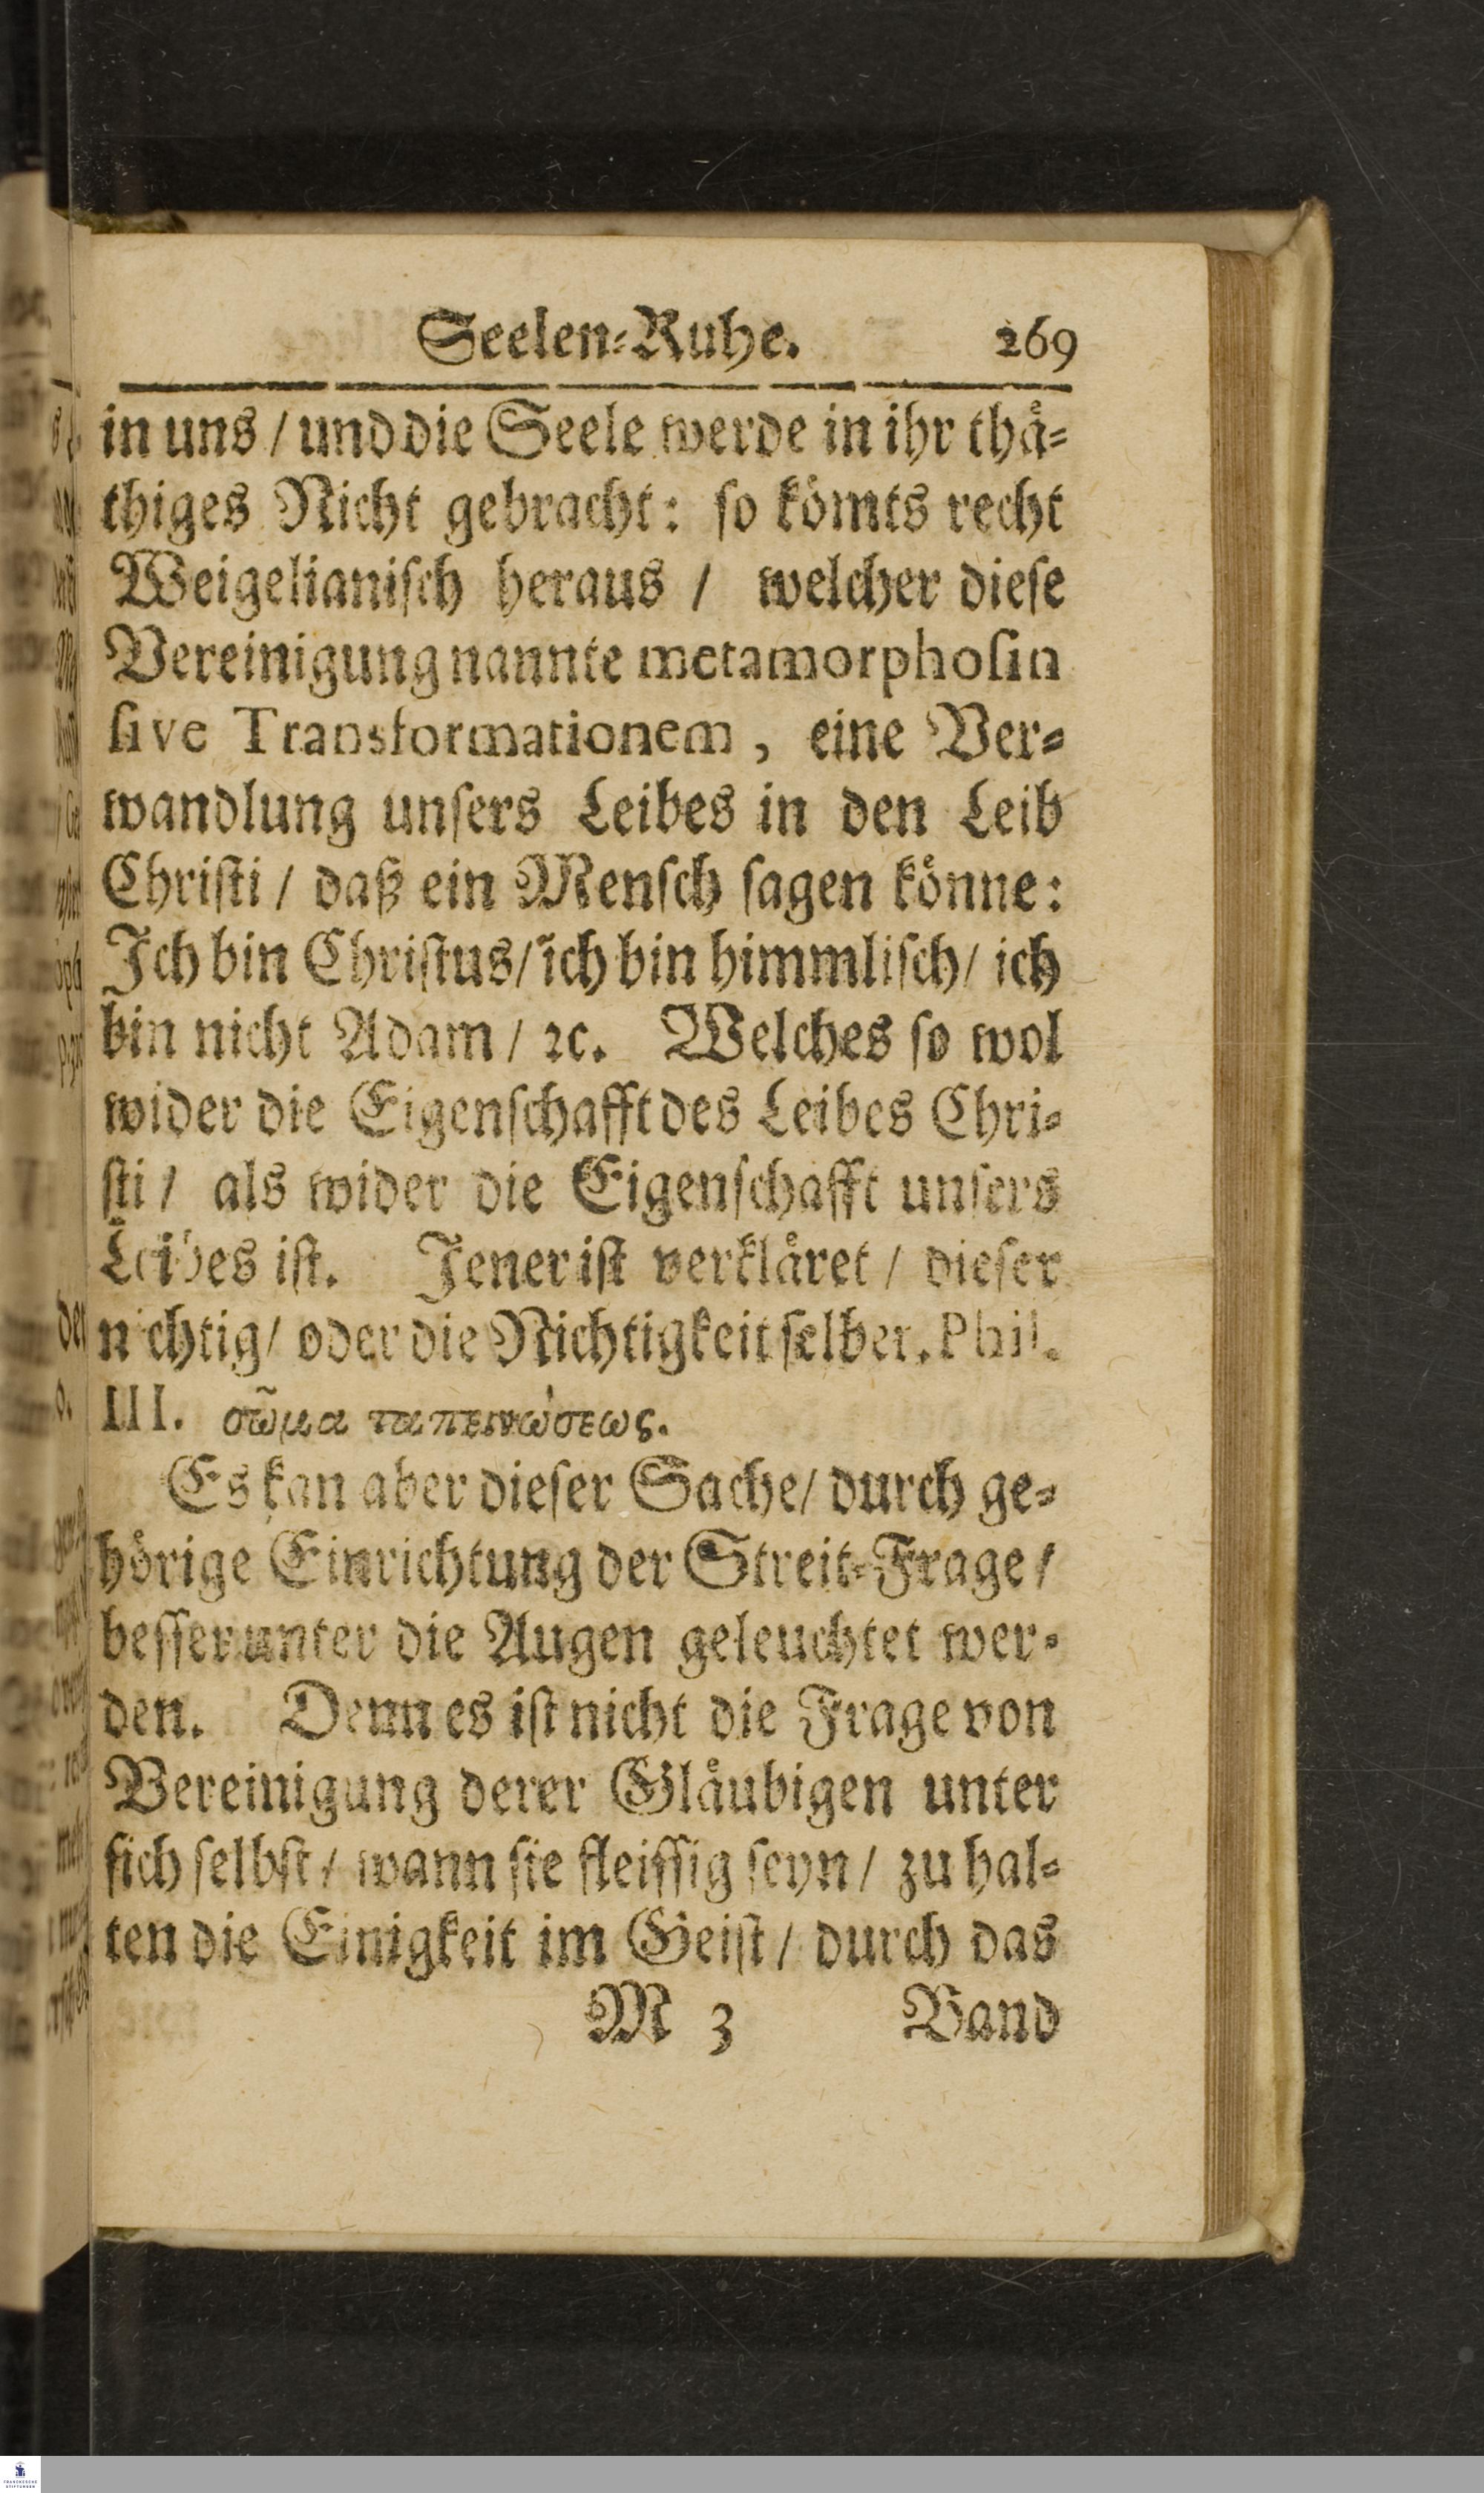 Seelen-Ruhe. 269
in uns / und die Seele werde in ihr thaͤ-
thiges Nicht gebracht: ſo koͤmts recht
Weigelianiſch heraus / welcher dieſe
Vereinigung nannte metamorphoſin
ſive Transformationem, eine Ver-
wandlung unſers Leibes in den Leib
Chriſti / daß ein Menſch ſagen koͤnne:
Ich bin Chriſtus / ich bin himmliſch / ich
bin nicht Adam / ꝛc. Welches ſo wol
wider die Eigenſchafft des Leibes Chri-
ſti / als wider die Eigenſchafft unſers
Leibes iſt. Jener iſt verklaͤret / dieſer
nichtig / oder die Nichtigkeit ſelber. Phil.
III. σῶμα ταπεινώσεως.
Es kan aber dieſer Sache / durch ge-
hoͤrige Einrichtung der Streit-Frage /
beſſer unter die Augen geleuchtet wer-
den. Denn es iſt nicht die Frage von
Vereinigung derer Glaͤubigen unter
ſich ſelbſt / wann ſie fleiſſig ſeyn / zu hal-
ten die Einigkeit im Geiſt / durch das
M 3 Band
FRANCKESCHE
STIFTUNGEN